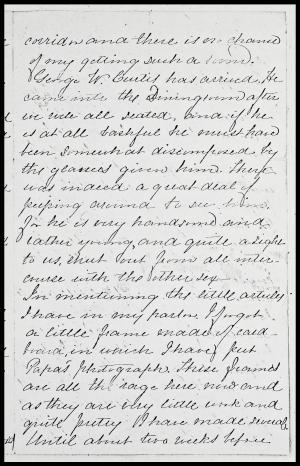 corridor and there is no chance
of my getting such a
George W. Curtis has arrived. He
came into the Diningroom after
we were all seated, and if he
is at all bashful he must have
been somewhat discomposed by
the glances given him. There
was indeed a great deal of
peeping around to see him.
For he is very handsome and
rather young, and quite a sight
to us, shut out from all inter-
course with the other sex.
In mentioning the little articles
I have in my parlor, I forgot
a little frame made of card-
board, in which I have put
Papa's photograph. These frames
are all the rage here now and
as they are very little work and
quite pretty I have made several.
Until about two weeks before